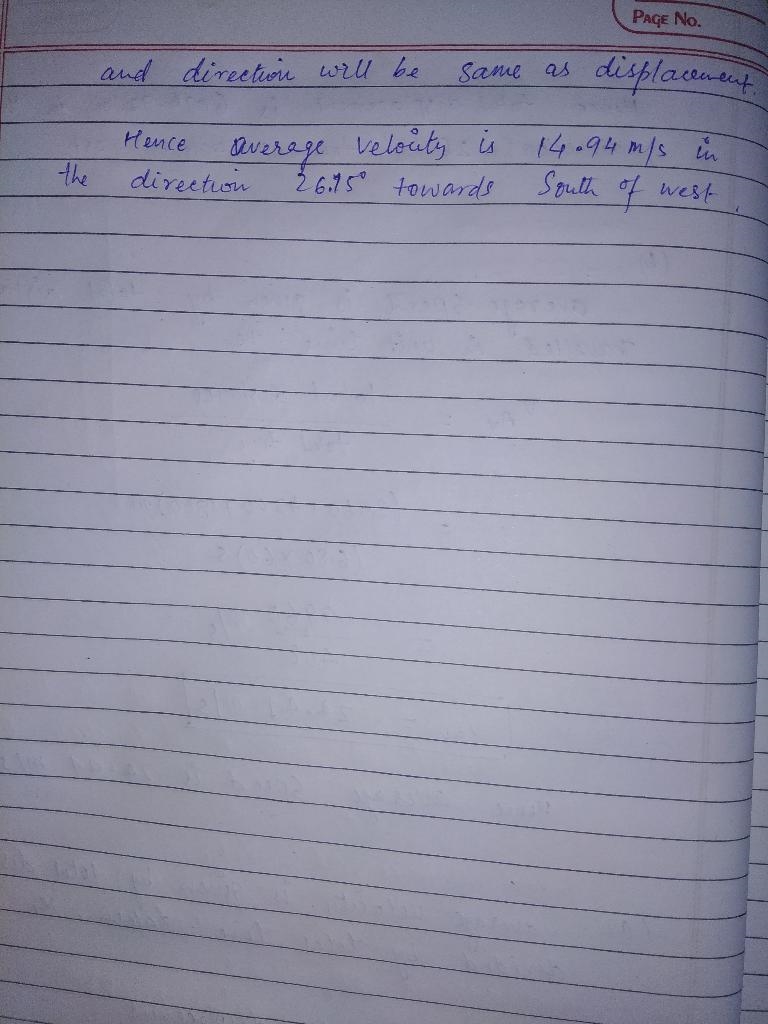 PAGE NO.
and direction will be same as displacement.
Hence average velocity is 14.94 m/s in
the direction 26.75° towards South of west.